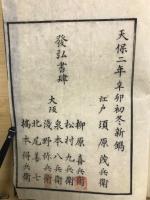 天保二年辛卯初冬新鐫
江戸 須原茂兵衛
發弘書肆
大坂
柳原喜兵衛
松村九兵衛
泉本八兵衛
浅野弥兵衛
北尾善七
橘本得兵衛